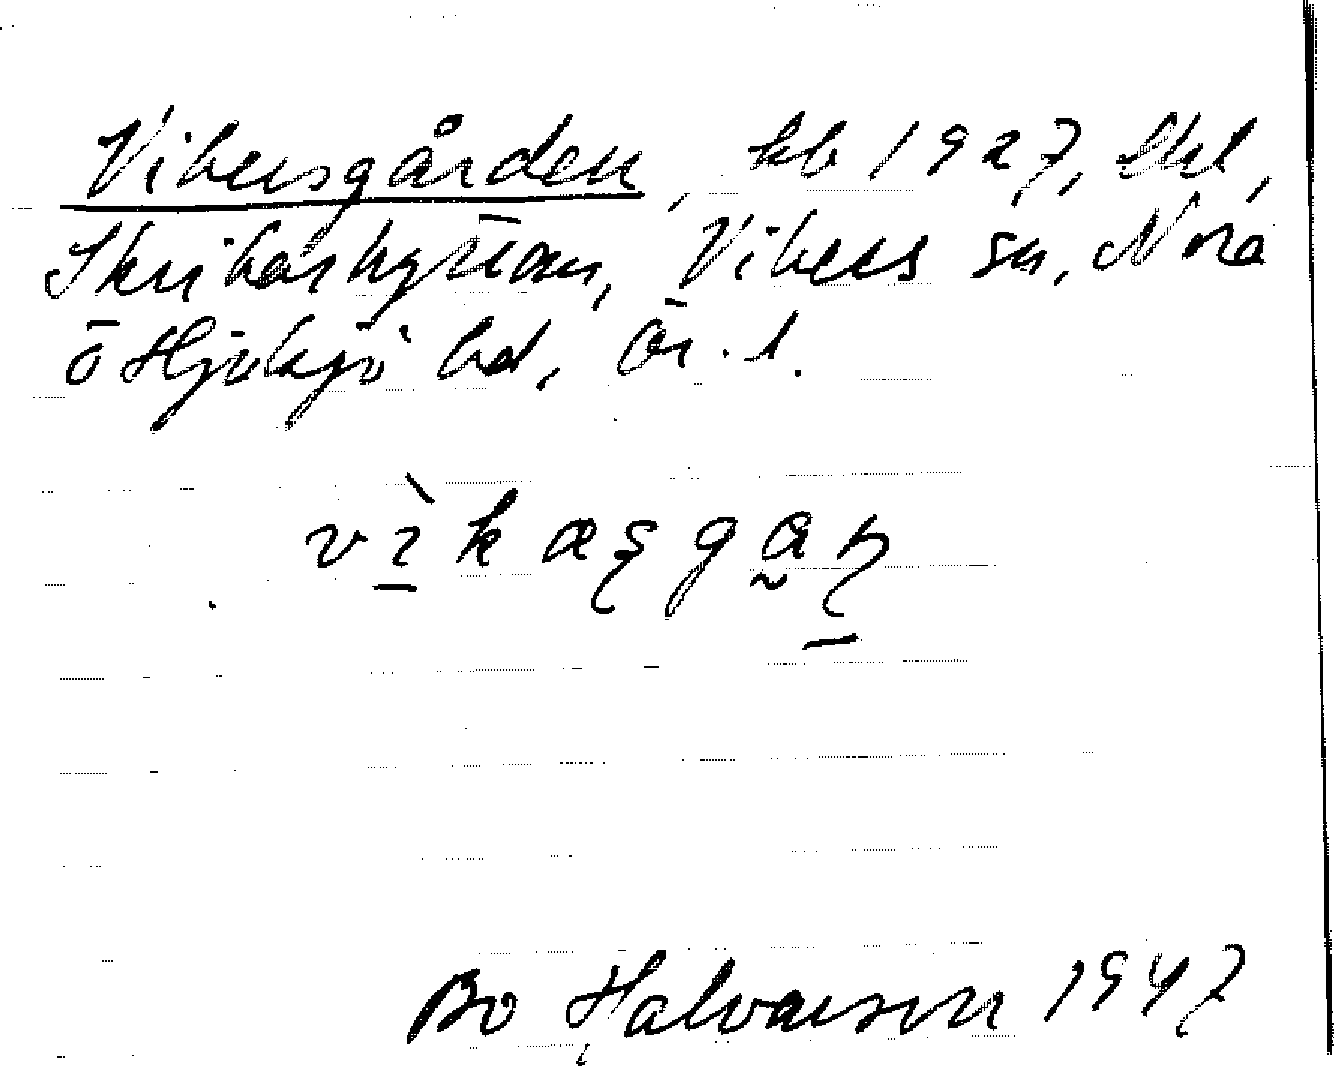 Vikersgården, kb 1927,
Skrikarhyttan, Vikers sn, Nora
o Hjulsjö hd, Ör. l.
vìkæʂgaɳ
Bo Halvarson 1947